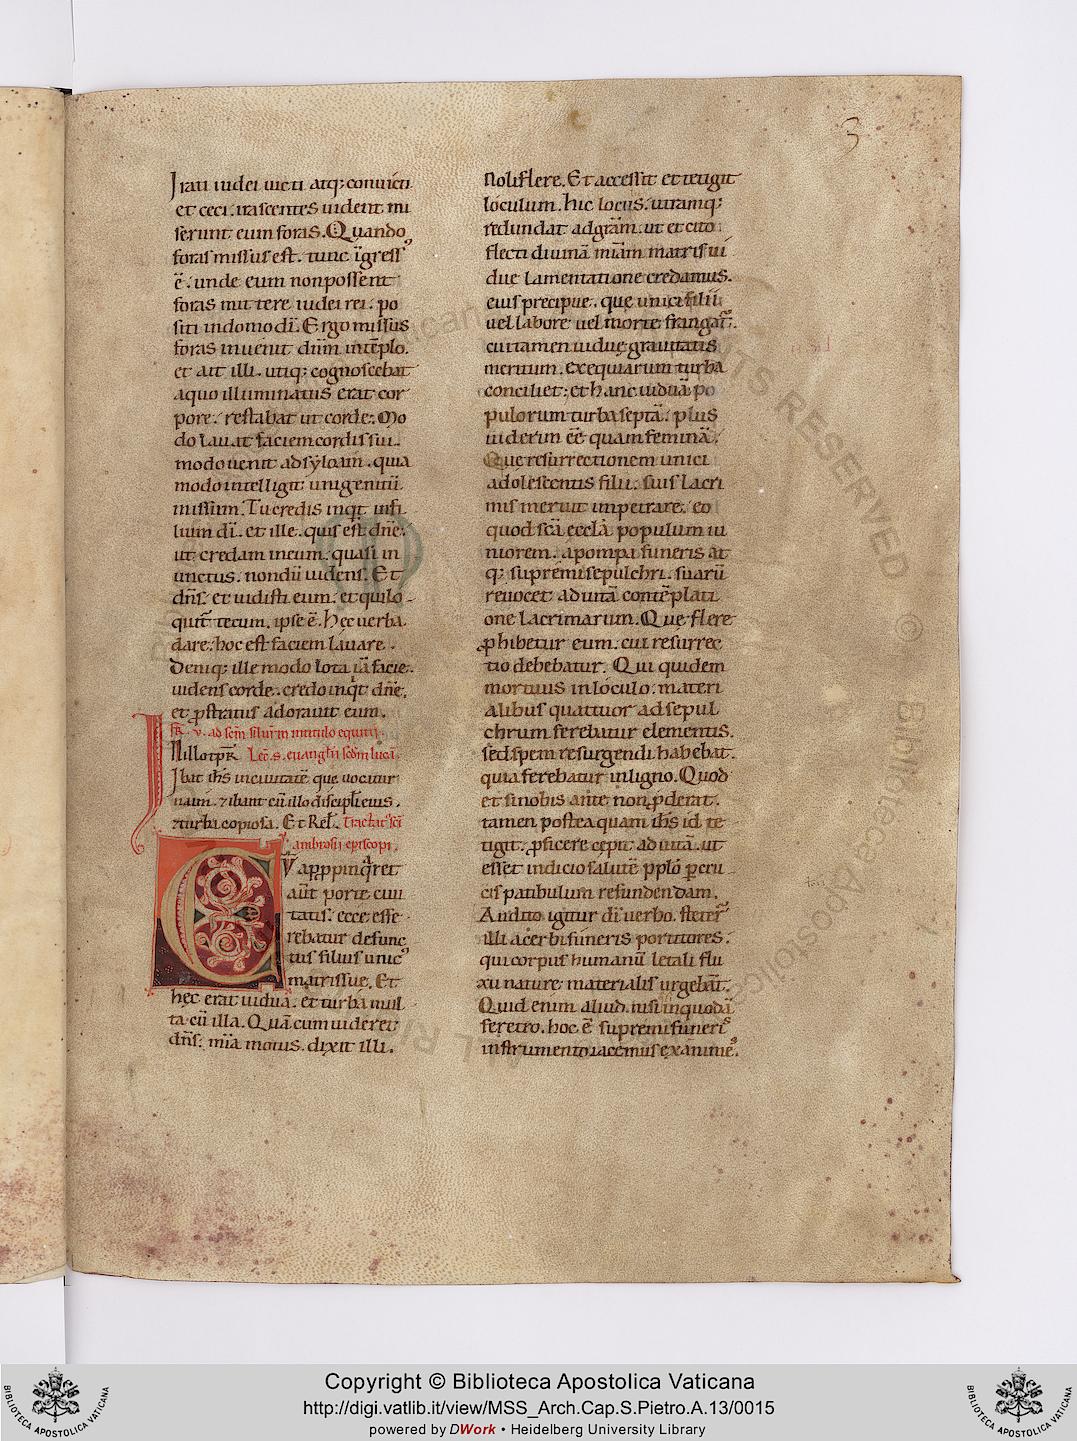 3
Irati iudei uicti atq; conuicti
et ceci. irascentes uidenti mi
serunt eum foras. Quando
foras missus est. tunc īgress᾿
ē. unde eum non possent
foras mittere iudei rei. po
siti in domo dī. Ergo missus
foras inuenit dn̄m in tēplo.
et ait illi. utiq; cognoscebat
a quo illuminatus erat cor
pore. restabat ut corde. Mo
do lauat faciem cordis sui.
modo uenit ad syloam. quia
modo intelligit unigenitū
missum. Tu credis inqt in fi
lium dī. et ille. quis est dn̄e.
ut credam in eum. quasi in
unctus. nondū uidens. Et
dn̄s. et uidisti eum. et qui lo
quit᾿ tecum. ipse ē. Hec uerba
dare. hoc est faciem lauare.
Deniq; ille modo lota iā facie.
uidens corde. credo inqt dn̄e.
et ꝓstratus adorauit eum.
fr̄. v. ad sc̄m silur̄m in titulo equitii.
In illo tp̄r. Lec̄. s. euanghīi scdm lucā.
Ibat ihs in ciuitatē que uocatur
naim. ⁊ ibant cū illo discipli eius.
⁊ turba copiosa. Et Rel̄. Tractat᾿ sc̄i
ambrosii episcopi.
CV̄ appropinqret
aūt porte ciui
tatis. ecce effe
rebatur defunc
tus filius unic᾿
matris sue. Et
hęc erat uidua. et turba mul
ta cū illa. Quā cum uideret
dn̄s. mīa motus. dixit illi.
Noli flere. Et accessit et tetigit
loculum. hic locus. utramq;
redundat ad gr̄am. ut et cito
flecti diuinā miām matris ui
due lamentatione credamus.
eius precipue. quę unici filii
uel labore uel morte frangat᾿.
cui tamen uiduę grauitatis
meritum. exequiarum turba
conciliet. et hanc uiduā po
pulorum turba septā. plus
uiderim eē quam feminā.
Que resurrectionem unici
adolescentis filii. suis lacri
mis meruit impetrare. eo
quod sc̄a ęcclā populum iu
niorem. a pompa funeris at
q; supremi sepulchri. suarū
reuocet ad uitā contēplati
one lacrimarum. Quę flere
ꝓhibetur eum. cui resurrec
tio debebatur. Qui quidem
mortuus in loculo. materi
alibus quattuor ad sepul
chrum ferebatur elementis.
sed spem resurgendi habebat.
quia ferebatur in ligno. Quod
et si nobis ante non ꝓderat.
tamen postea quam ihs id te
tigit. ꝓficere cępit ad uitā. ut
esset indicio salutē pplō per cru
cis patibulum refundendam.
Audito igitur dī uerbo. steter᾿
illi acerbi funeris portitores.
qui corpus humanū letali flu
xu nature materialis urgebāt.
Quid enim aliud. nisi in quodā
feretro. hoc ē supremi funeris
instrumento iacemus exanime᾿.
Copyright © Biblioteca Apostolica Vaticana
http://digi.vatlib.it/view/MSS_Arch.Cap.S.Pietro.A.13/0015
powered by DWork • Heidelberg University Library
BIBLIOTECA APOSTOLICA VATICANA
BIBLIOTECA APOSTOLICA VATICANA